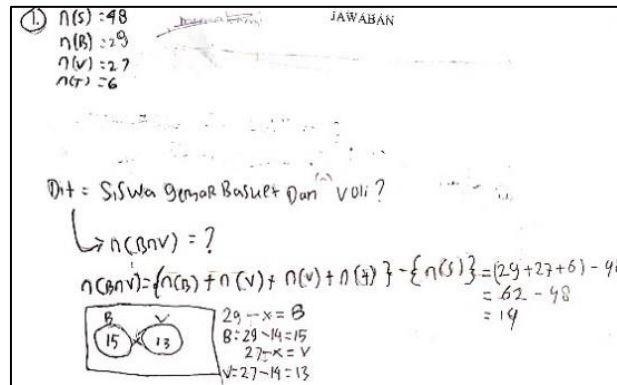 JAWABAN
1. n(S) = 48
n(B) = 29
n(V) = 27
n(T) = 6
Dit = Siswa gemar Basket Dan Voli?
n(B∩V) = ?
n(B∩V) = {n(B) + n(V) + n(V) + n(T)} - {n(S)} = (29+27+6) - 48
= 62 - 48
= 14
B V
15 x 13
29 - x = B
B = 29 - 14 = 15
27 - x = V
V = 27 - 14 = 13